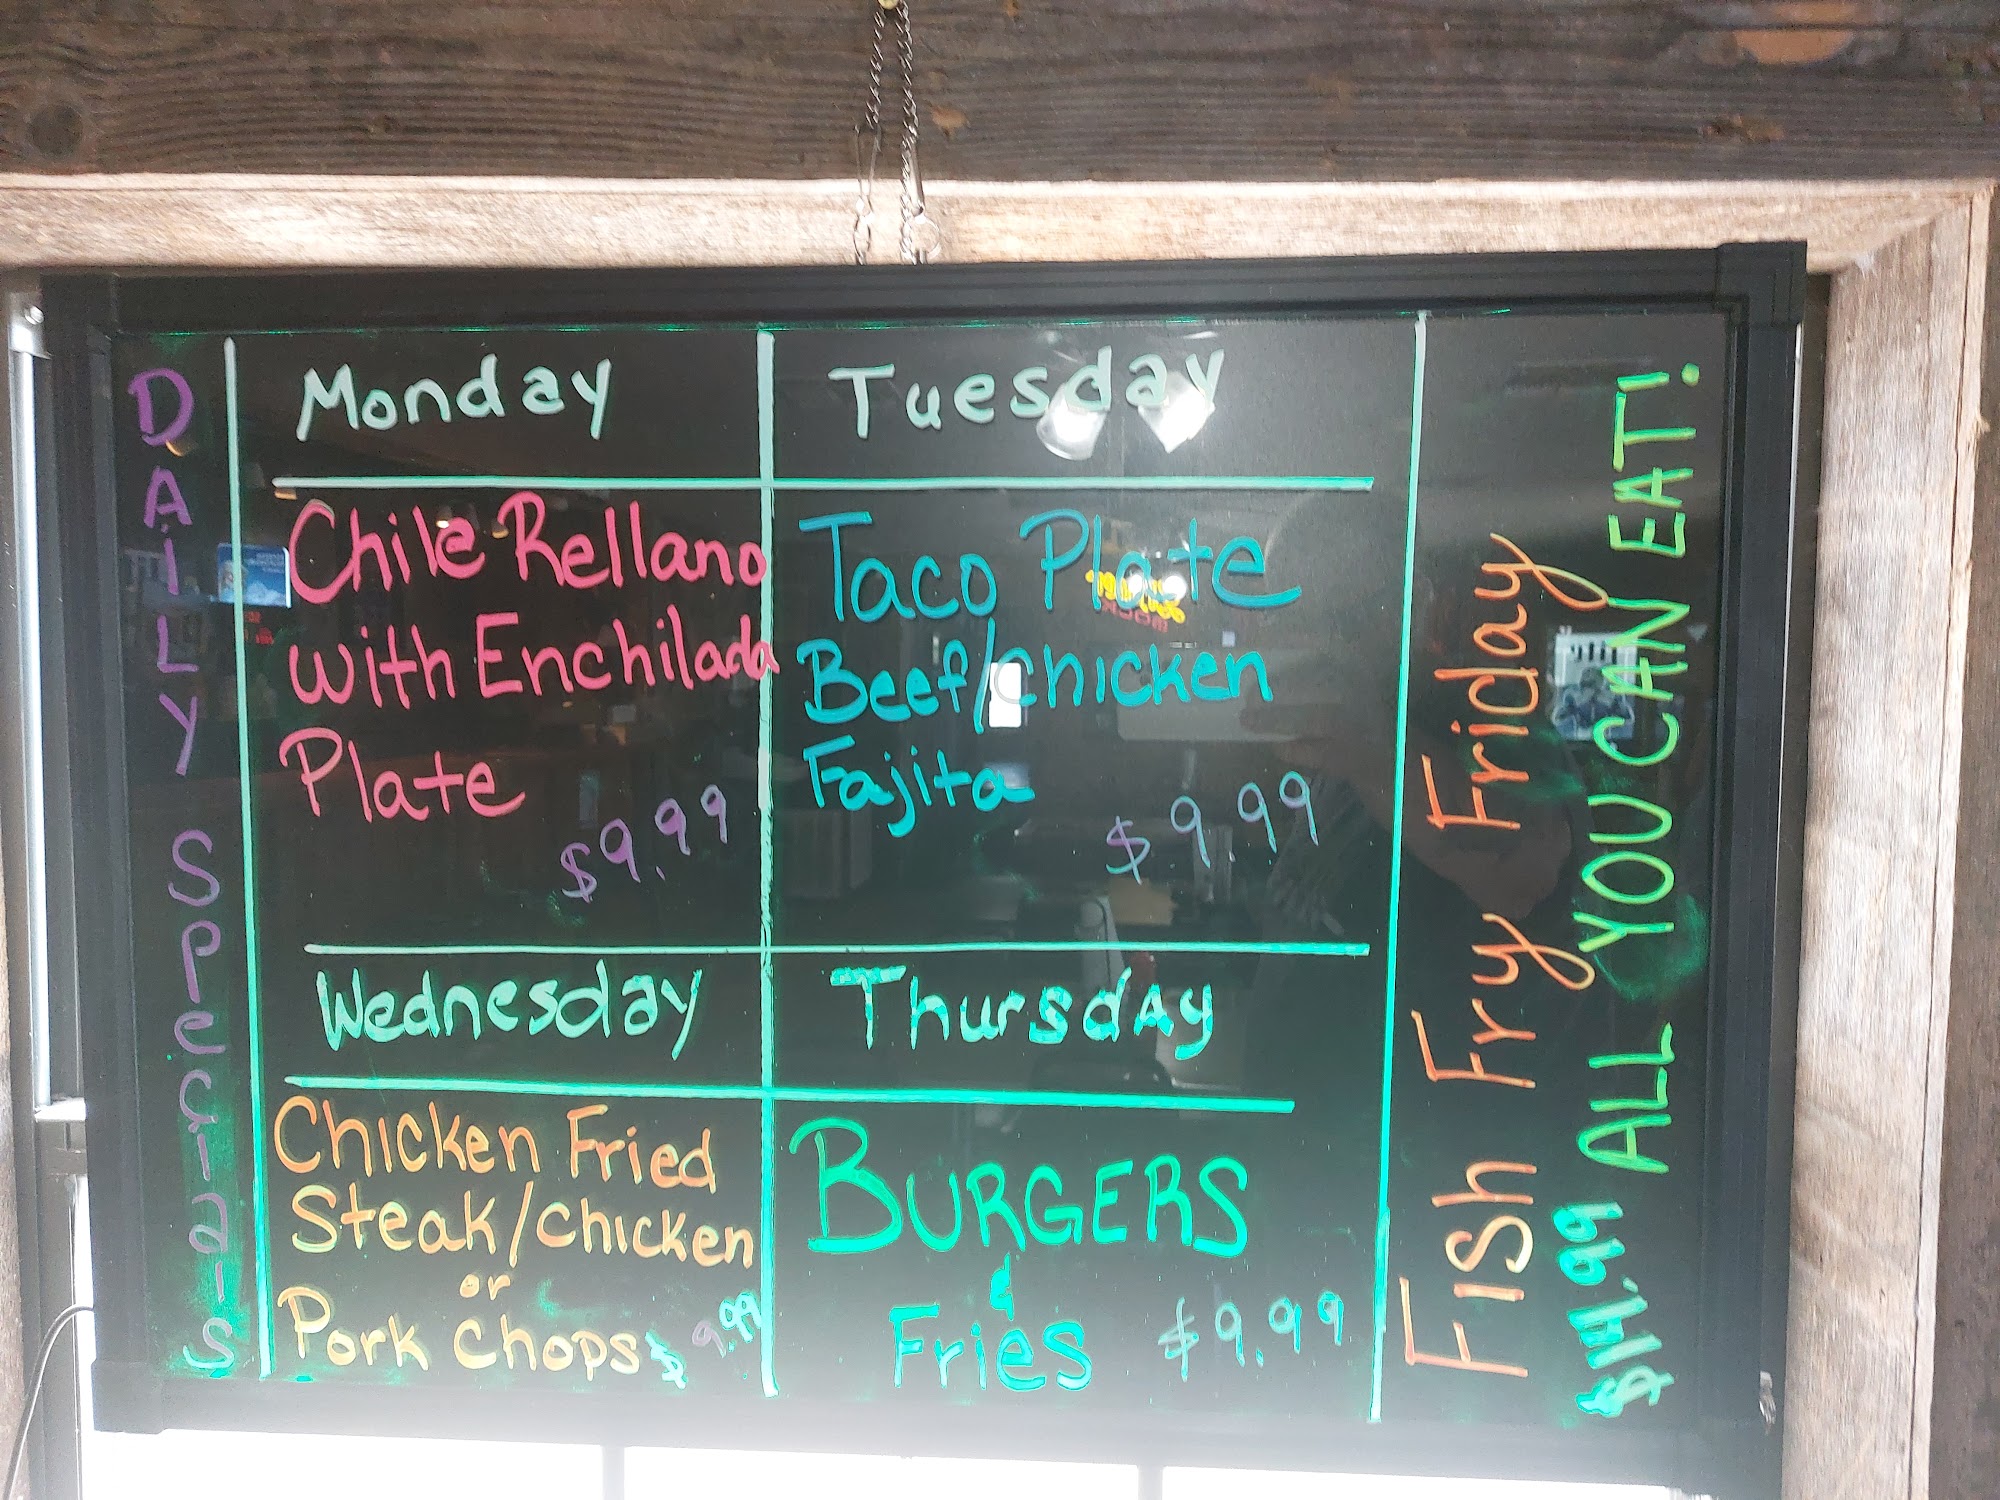 DAILY SPeCials
Monday
Chile Rellano
with Enchilada
Plate
$9.99
Tuesday
Taco Plate
Beef/chicken
Fajita
$9.99
Wednesday
Chicken Fried
Steak/chicken
or
Pork Chops $9.99
Thursday
BURGERS
&
Fries $9.99
Fish Fry Friday
$14.99 ALL YOU CAN EAT!